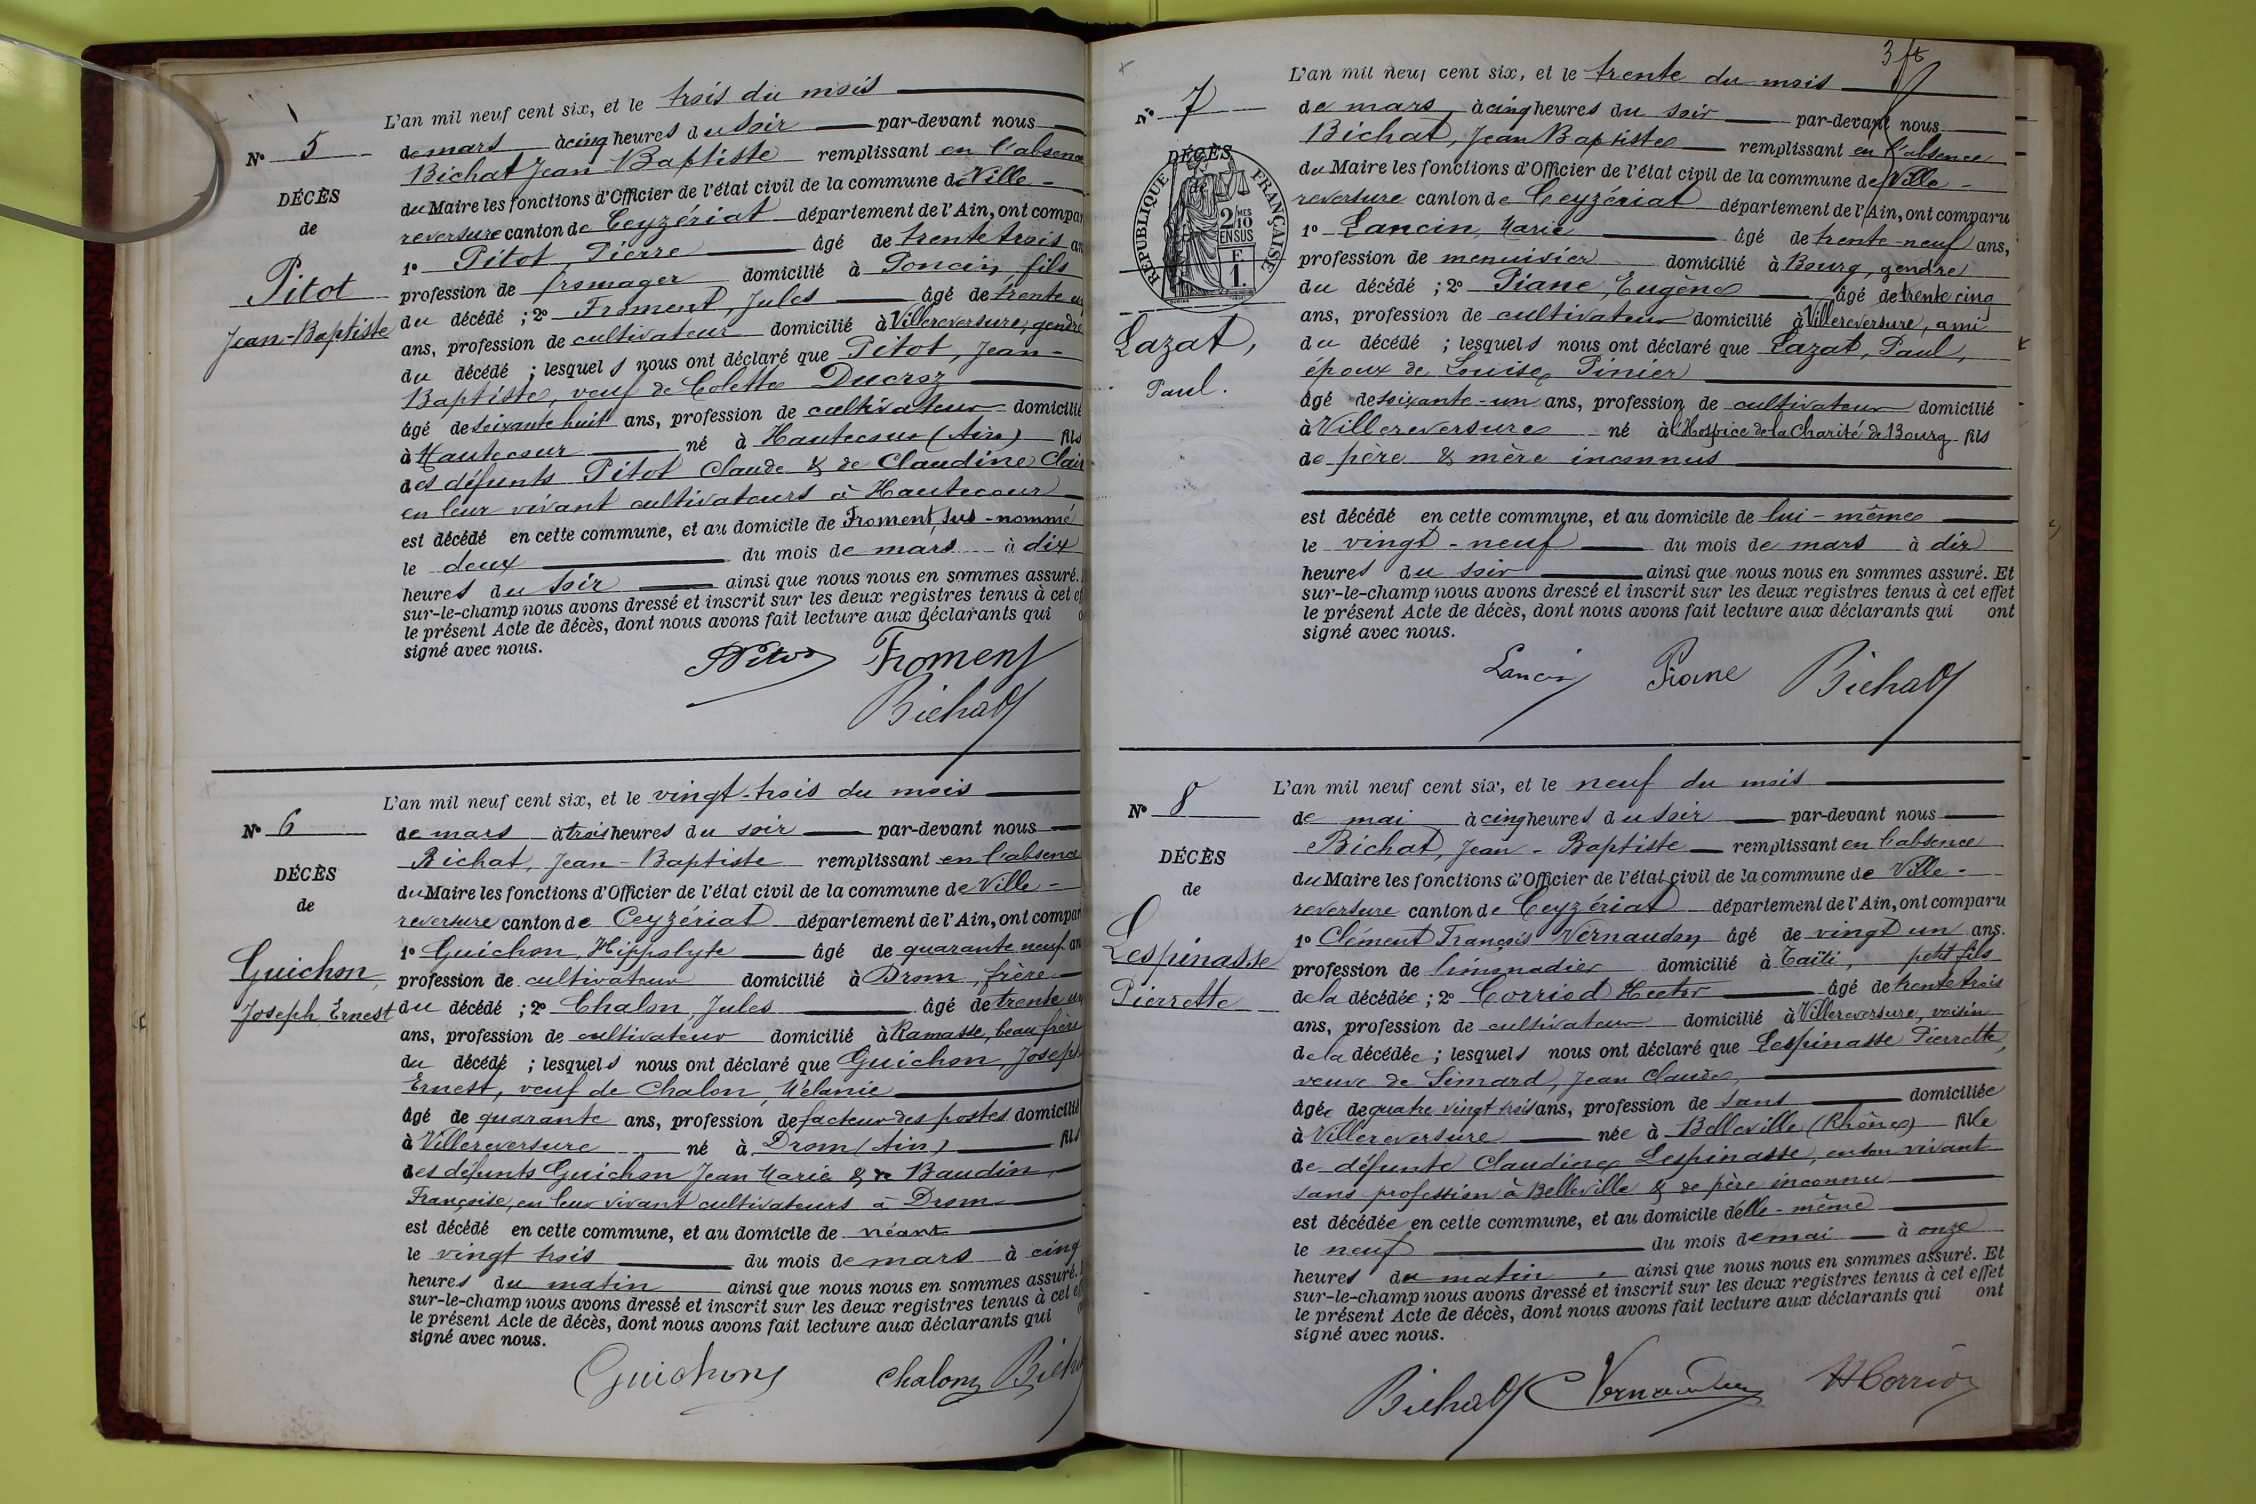 N° 5
DÉCÈS
de
Pitot
Jean-Baptiste
L'an mil neuf cent six, et le trois du mois
de mars à cinq heures du soir par-devant nous
Bichat Jean Baptiste remplissant en l'absence
du Maire les fonctions d'Officier de l'état civil de la commune de Ville-
reversure canton de Ceyzériat département de l'Ain, ont compar
1° Pitot, Pierre âgé de trente trois an
profession de fromager domicilié à Poncin, fils
du décédé ; 2° Froment, Jules âgé de trente
ans, profession de cultivateur domicilié à Villereversure, gendre
du décédé ; lesquels nous ont déclaré que Pitot, Jean-
Baptiste, veuf de Colette Ducroz
âgé de soixante huit ans, profession de cultivateur domicilié
à Hautecour né à Hautecour (Ain) fils
des défunts Pitot Claude & de Claudine Clair
en leur vivant cultivateurs à Hautecour
est décédé en cette commune, et au domicile de Froment, sus-nommé
le deux du mois de mars à dix
heures du soir ainsi que nous nous en sommes assuré.
sur-le-champ nous avons dressé et inscrit sur les deux registres tenus à cet ef
le présent Acte de décès, dont nous avons fait lecture aux déclarants qui o
signé avec nous.
Pitot Froment
Bichat
N° 6
DÉCÈS
de
Guichon,
Joseph Ernest
L'an mil neuf cent six, et le vingt-trois du mois
de mars à trois heures du soir par-devant nous
Bichat, Jean-Baptiste remplissant en l'absence
du Maire les fonctions d'Officier de l'état civil de la commune de Ville-
reversure canton de Ceyzériat département de l'Ain, ont compar
1° Guichon, Hippolyte âgé de quarante neuf an
profession de cultivateur domicilié à Drom, frère
du décédé ; 2° Chalon, Jules âgé de trente un
ans, profession de cultivateur domicilié à Ramasse, beau frère
du décédé ; lesquels nous ont déclaré que Guichon, Joseph
Ernest, veuf de Chalon, Mélanie
âgé de quarante ans, profession de facteur des postes domicilié
à Villereversure né à Drom (Ain) fils
des défunts Guichon Jean Marie & de Baudin,
Françoise, en leur vivant cultivateurs à Drom
est décédé en cette commune, et au domicile de néant
le vingt trois du mois de mars à cinq
heures du matin ainsi que nous nous en sommes assuré.
sur-le-champ nous avons dressé et inscrit sur les deux registres tenus à cet ef
le présent Acte de décès, dont nous avons fait lecture aux déclarants qui
signé avec nous.
Guichon Chalon Bich
3
N° 7
DÉCÈS
de
RÉPUBLIQUE FRANÇAISE
2/10 MES
EN SUS
F
1.
Lazat,
Paul.
L'an mil neuf cent six, et le trente du mois
de mars à cinq heures du soir par-devant nous
Bichat, Jean Baptiste remplissant en l'absence
du Maire les fonctions d'Officier de l'état civil de la commune de Ville-
reversure canton de Ceyzériat département de l'Ain, ont comparu
1° Lancin, Marie âgé de trente-neuf ans,
profession de menuisier domicilié à Bourg, gendre
du décédé ; 2° Piane, Eugène âgé de trente cinq
ans, profession de cultivateur domicilié à Villereversure, ami
du décédé ; lesquels nous ont déclaré que Lazat, Paul,
époux de Louise Pinier
âgé de soixante-un ans, profession de cultivateur domicilié
à Villereversure né à l'Hospice de la Charité de Bourg fils
de père & mère inconnus
est décédé en cette commune, et au domicile de lui-même
le vingt-neuf du mois de mars à dix
heures du soir ainsi que nous nous en sommes assuré. Et
sur-le-champ nous avons dressé et inscrit sur les deux registres tenus à cet effet
le présent Acte de décès, dont nous avons fait lecture aux déclarants qui ont
signé avec nous.
Lancin Piane Bichat
N° 8
DÉCÈS
de
Lespinasse
Pierrette
L'an mil neuf cent six, et le neuf du mois
de mai à cinq heures du soir par-devant nous
Bichat, Jean-Baptiste remplissant en l'absence
du Maire les fonctions d'Officier de l'état civil de la commune de Ville-
reversure canton de Ceyzériat département de l'Ain, ont comparu
1° Clément François Vernaudon âgé de vingt un ans.
profession de limonadier domicilié à Taïti, petit fils
de la décédée ; 2° Corriod Hector âgé de trente trois
ans, profession de cultivateur domicilié à Villereversure, voisin
de la décédée ; lesquels nous ont déclaré que Lespinasse Pierrette,
veuve de Simard, Jean Claude,
âgée de quatre vingt trois ans, profession de sans domiciliée
à Villereversure née à Belleville (Rhône) fille
de défunte Claudine Lespinasse, en son vivant
sans profession à Belleville & de père inconnu
est décédée en cette commune, et au domicile d'elle-même
le neuf du mois de mai à onze
heures du matin ainsi que nous nous en sommes assuré. Et
sur-le-champ nous avons dressé et inscrit sur les deux registres tenus à cet effet
le présent Acte de décès, dont nous avons fait lecture aux déclarants qui ont
signé avec nous.
Bichat C Vernaudon H Corriod